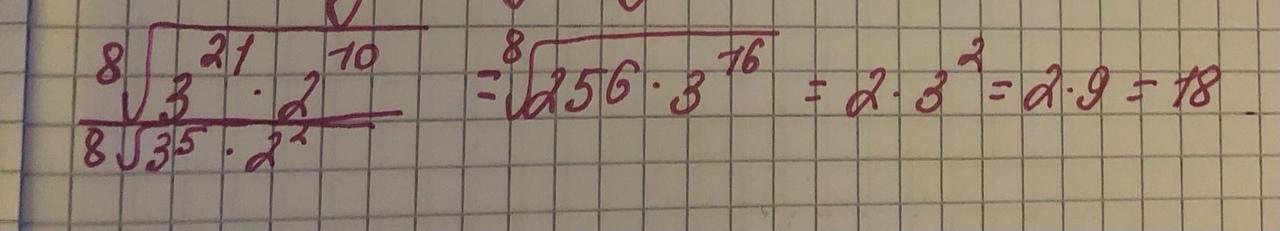 ⁸√(3²¹ · 2¹⁰) / ⁸√(3⁵ · 2²) = ⁸√(256 · 3¹⁶) = 2 · 3² = 2 · 9 = 18